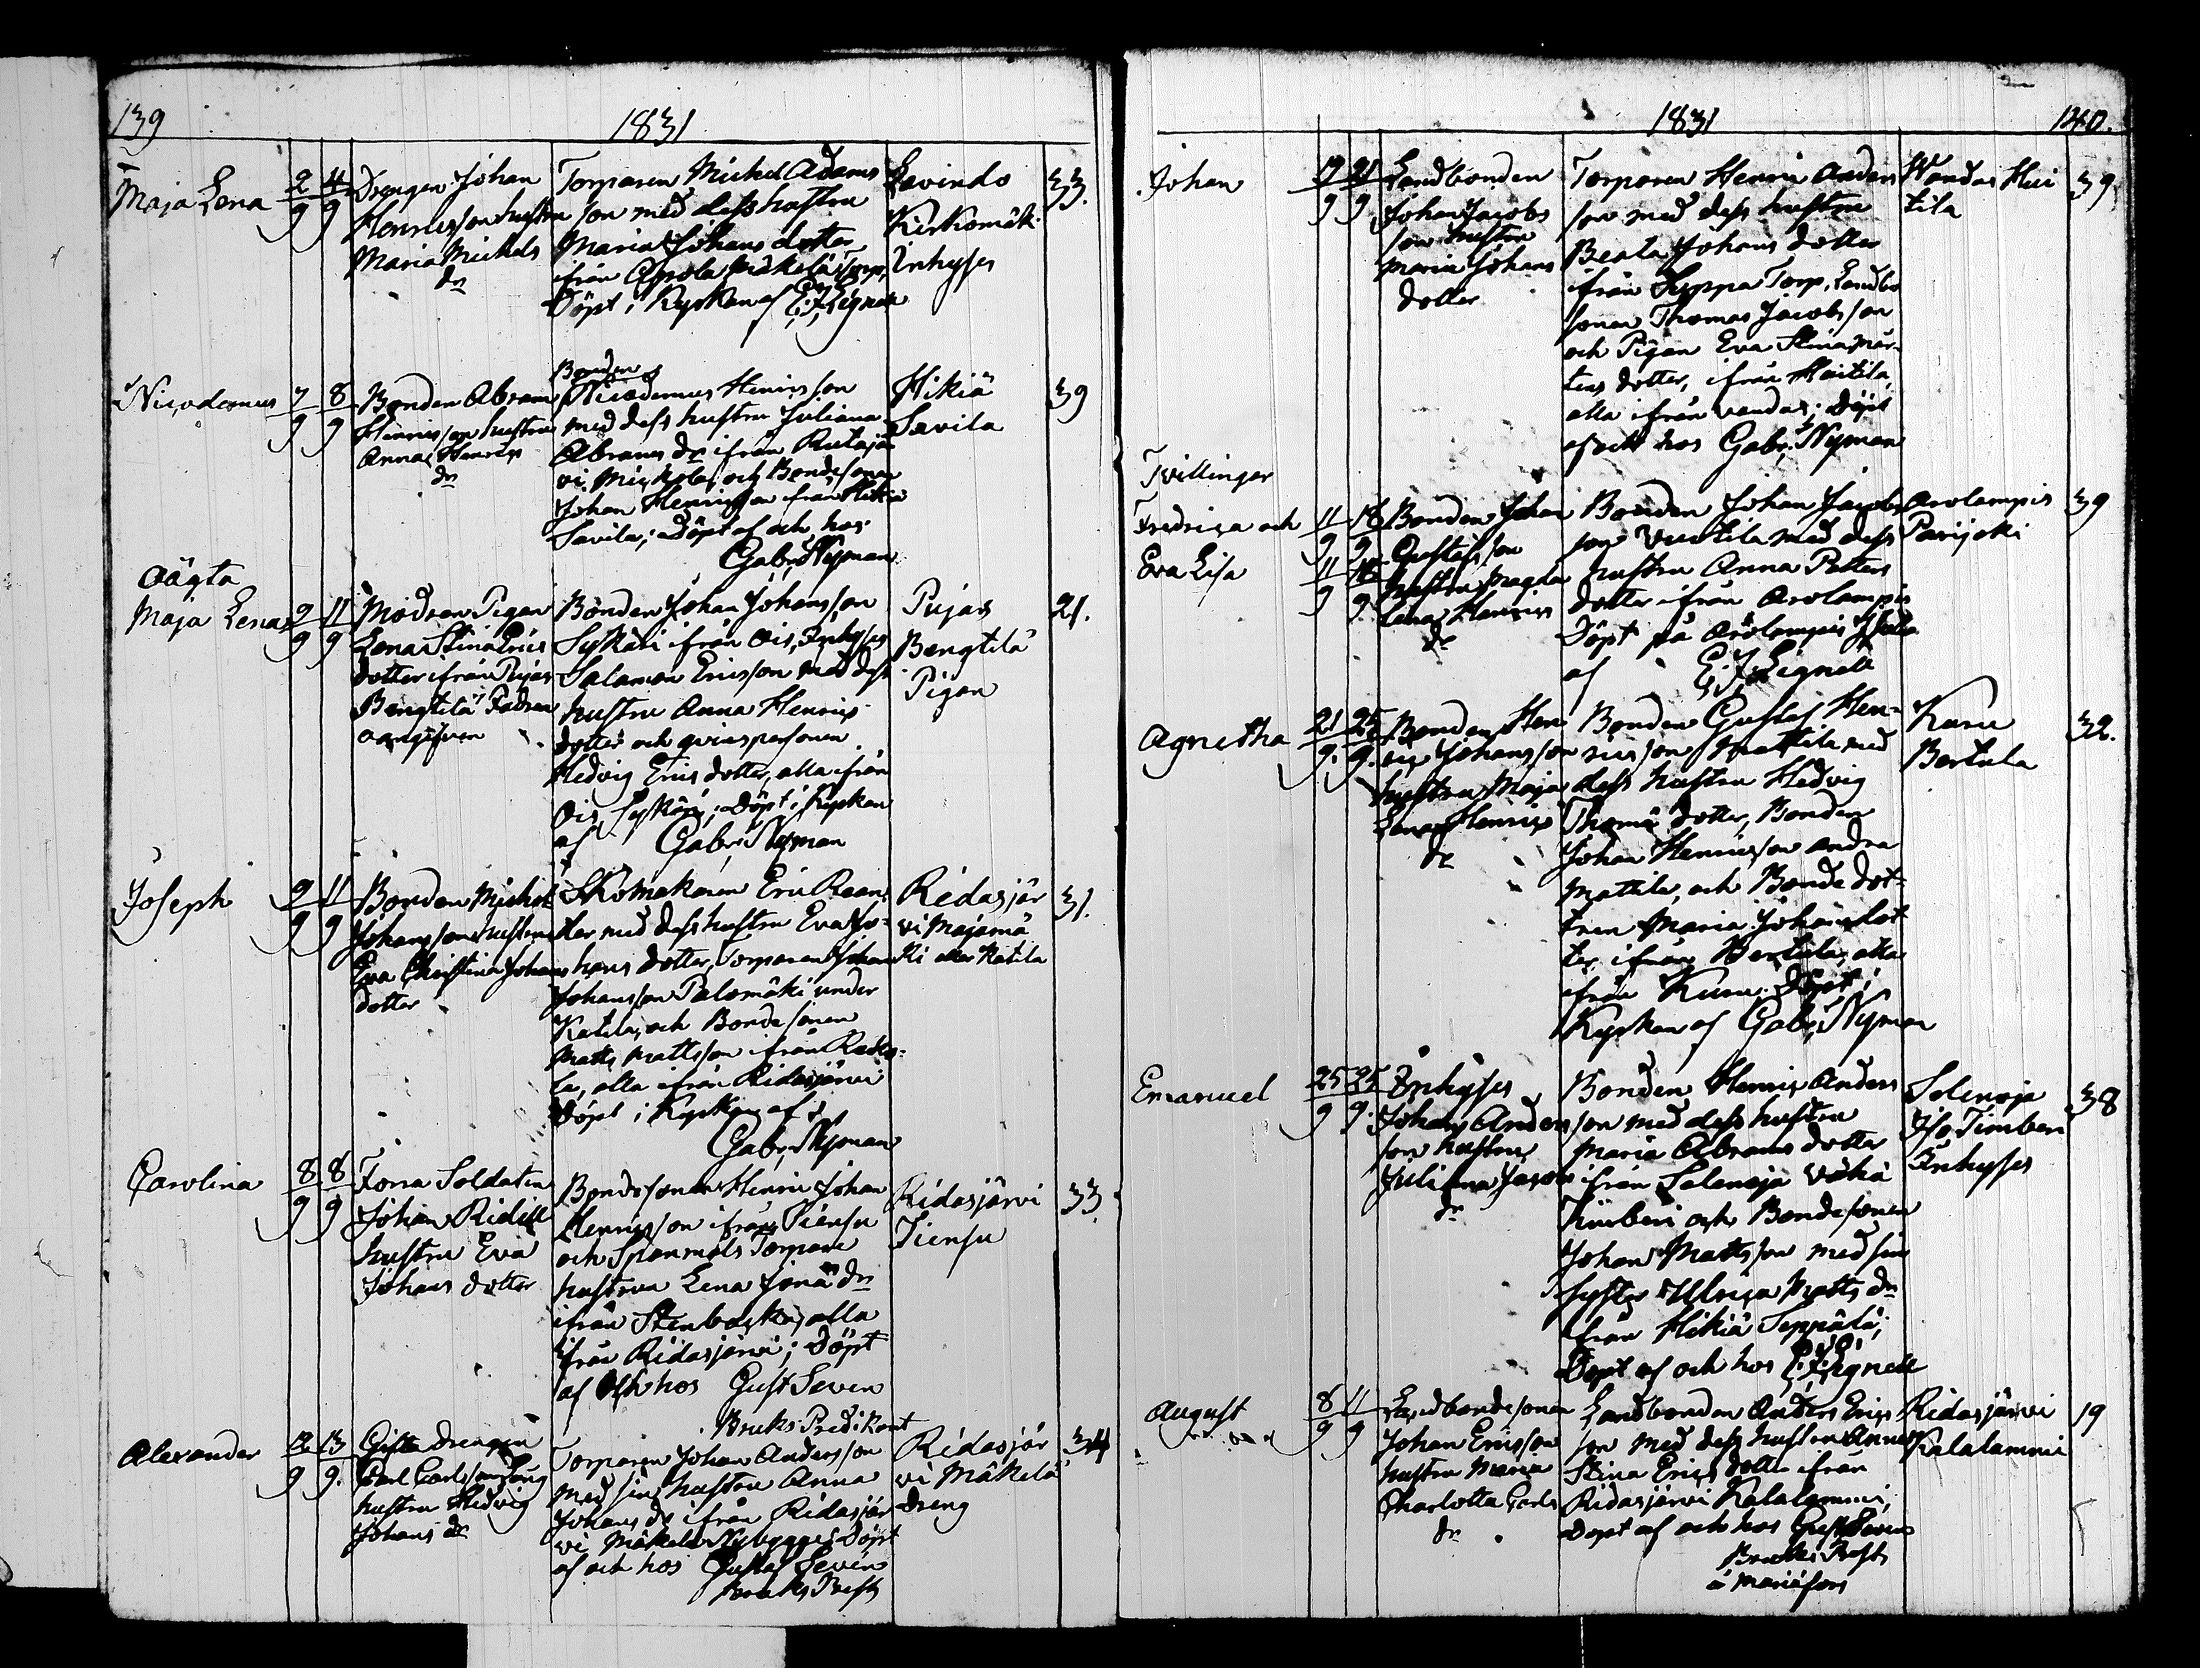 139
1831
Maja Lena 2/9 4/9 Drengen Johan Henricsson hustru Maria Michels dr
Torparen Michel Adams
son med dess hustru
Maria Johans dotter
ifrån Mäkelä torp,
Döpt i Kyrkan af E. J. Lignell
Lavindo
Kirkomäki
Inhyses
33.
Nicodemus 7/9 8/9
Bonden Abram
Henricsson hustru
Anna Henrics
dr
Bonden
Nicodemus Henricsson
med dess hustru Juliana
Abrams dr ifrån Rutajär
vi och Bondesonen
Johan Henricsson från Hikiä
Savila; Döpt af och hos
Gabr. Nyman
Hikiä
Savila
39
Oägta
Maja Lena 9/9 11/9
Modren Pigan
Lena Stina Erics
dotter ifrån Pujas
Bengtilä Fadren
oangifven
Bonden Johan Johansson
Sykäri ifrån Ois, Inhyses
Salamon Ericsson med dess
hustru Anna Henrics
dotter och qvinspersonen
Hedvig Erics dotter, alla ifrån
Ois, Sykäri; Döpt i Kyrkan
af Gabr. Nyman
Pujas
Bengtilä
Pigan
21.
Joseph 9/9 11/9
Bonden Michel
Johansson hustru
Eva Christina Johans
dotter
Skomakaren Eric Raan
ter med dess hustru Eva Jo-
hans dotter, Torparen Johan
Johansson Palomäki under
Katila, och Bondesonen
Matts Mattsson ifrån
la, alla ifrån Ridasjärvi
Döpt i Kyrkan af
Gabr. Nyman
Ridasjär
vi Majamä
ki eller Katila
31.
Carolina 8/9 8/9
Forra Soldaten
Johan Ridell
hustru Eva
Johans dotter
Bondesonen Henric Johan
Henricsson ifrån Tiensu
och Spanmåls Torpare
hustrun Lena Jonä dr
ifrån Stenbacka, alla
ifrån Ridasjärvi; Döpt
af och hos Gust Seven
Bruks Predikant
Ridasjärvi
Tiensu
33
Alexander 12/9 13/9
Gifta drengen
Carl Carlsson Lång
hustru Hedvig
Johans dr
Torparen Johan Andersson
med sin hustru Anna
Johans dr ifrån Ridasjär
vi Mäkelä Nybygge; Döpt
af och hos Gustaf Sevén
Bruks Prest
Ridasjär
vi Mäkelä
dreng
34
1831
140.
Johan 19/9 21/9
Landbonden
Johan Jacobs
son hustru
Maria Johans
dotter
Torparen Henric Anders
son med dess hustru
Beata Johans dotter
ifrån Seppa Torp, Landbo
sonen Thomas Jacobsson
och Pigan Eva Stina Mår-
tens dotter, ifrån Huitila,
alla ifrån Vandas; Döpt
af och hos Gabr. Nyman
Wandas Hui
tila
39
Tvillingar
Fredrica och 11/9 16/9
Eva Lisa 11/9 16/9
Bonden Johan
Gustafsson
hustru Magda
lena Henrics
dr
Bonden Johan Jacobs
son Vuotila med dess
hustru Anna Petters
dotter ifrån Arolampis
Döpt på Arolampis
af E. J. Lignell
Arolampis
Parijoki
39
Agnetha 21/9. 25/9.
Bonden Hen
ric Johansson
hustru Maja
Lena Henrics
dr
Bonden Gustaf Hen-
ricsson Mattila med
dess hustru Hedvig
Thomä dotter, Bonden
Johan Henricsson andra
Mattila, och Bondedot-
tren Maria Johans dot
ter ifrån Bertula, alla
ifrån Kuru. Döpt i
Kyrkan af Gabr. Nyman
Kuru
Bertula
32.
Emanuel 25/9 25/9.
Inhyses
Johan Anders
son hustru
Juliana Jacobs
dr
Bonden Henric Anders
son med dess hustru
Maria Abrams dotter
ifrån Salenoja Vähä
Timberi och Bondesonen
Johan Mattsson med sin
Syster Ulrica Matts dr
från Hikiä Seppälä;
Döpt af och hos E. J. Lignell
Salenoja
Iso Timberi
Inhyses
38
August 8/9 11/9
Landbondesonen
Johan Ericsson
hustru Maria
Charlotta Carls
dr
Landbonden Anders Erics
son med dess hustru Anna
Stina Erics dotter ifrån
Ridasjärvi Kalalammi;
Döpt af och hos Gust Seven
Bruks Prest
å Mariefors
Ridasjärvi
Kalalammi
19